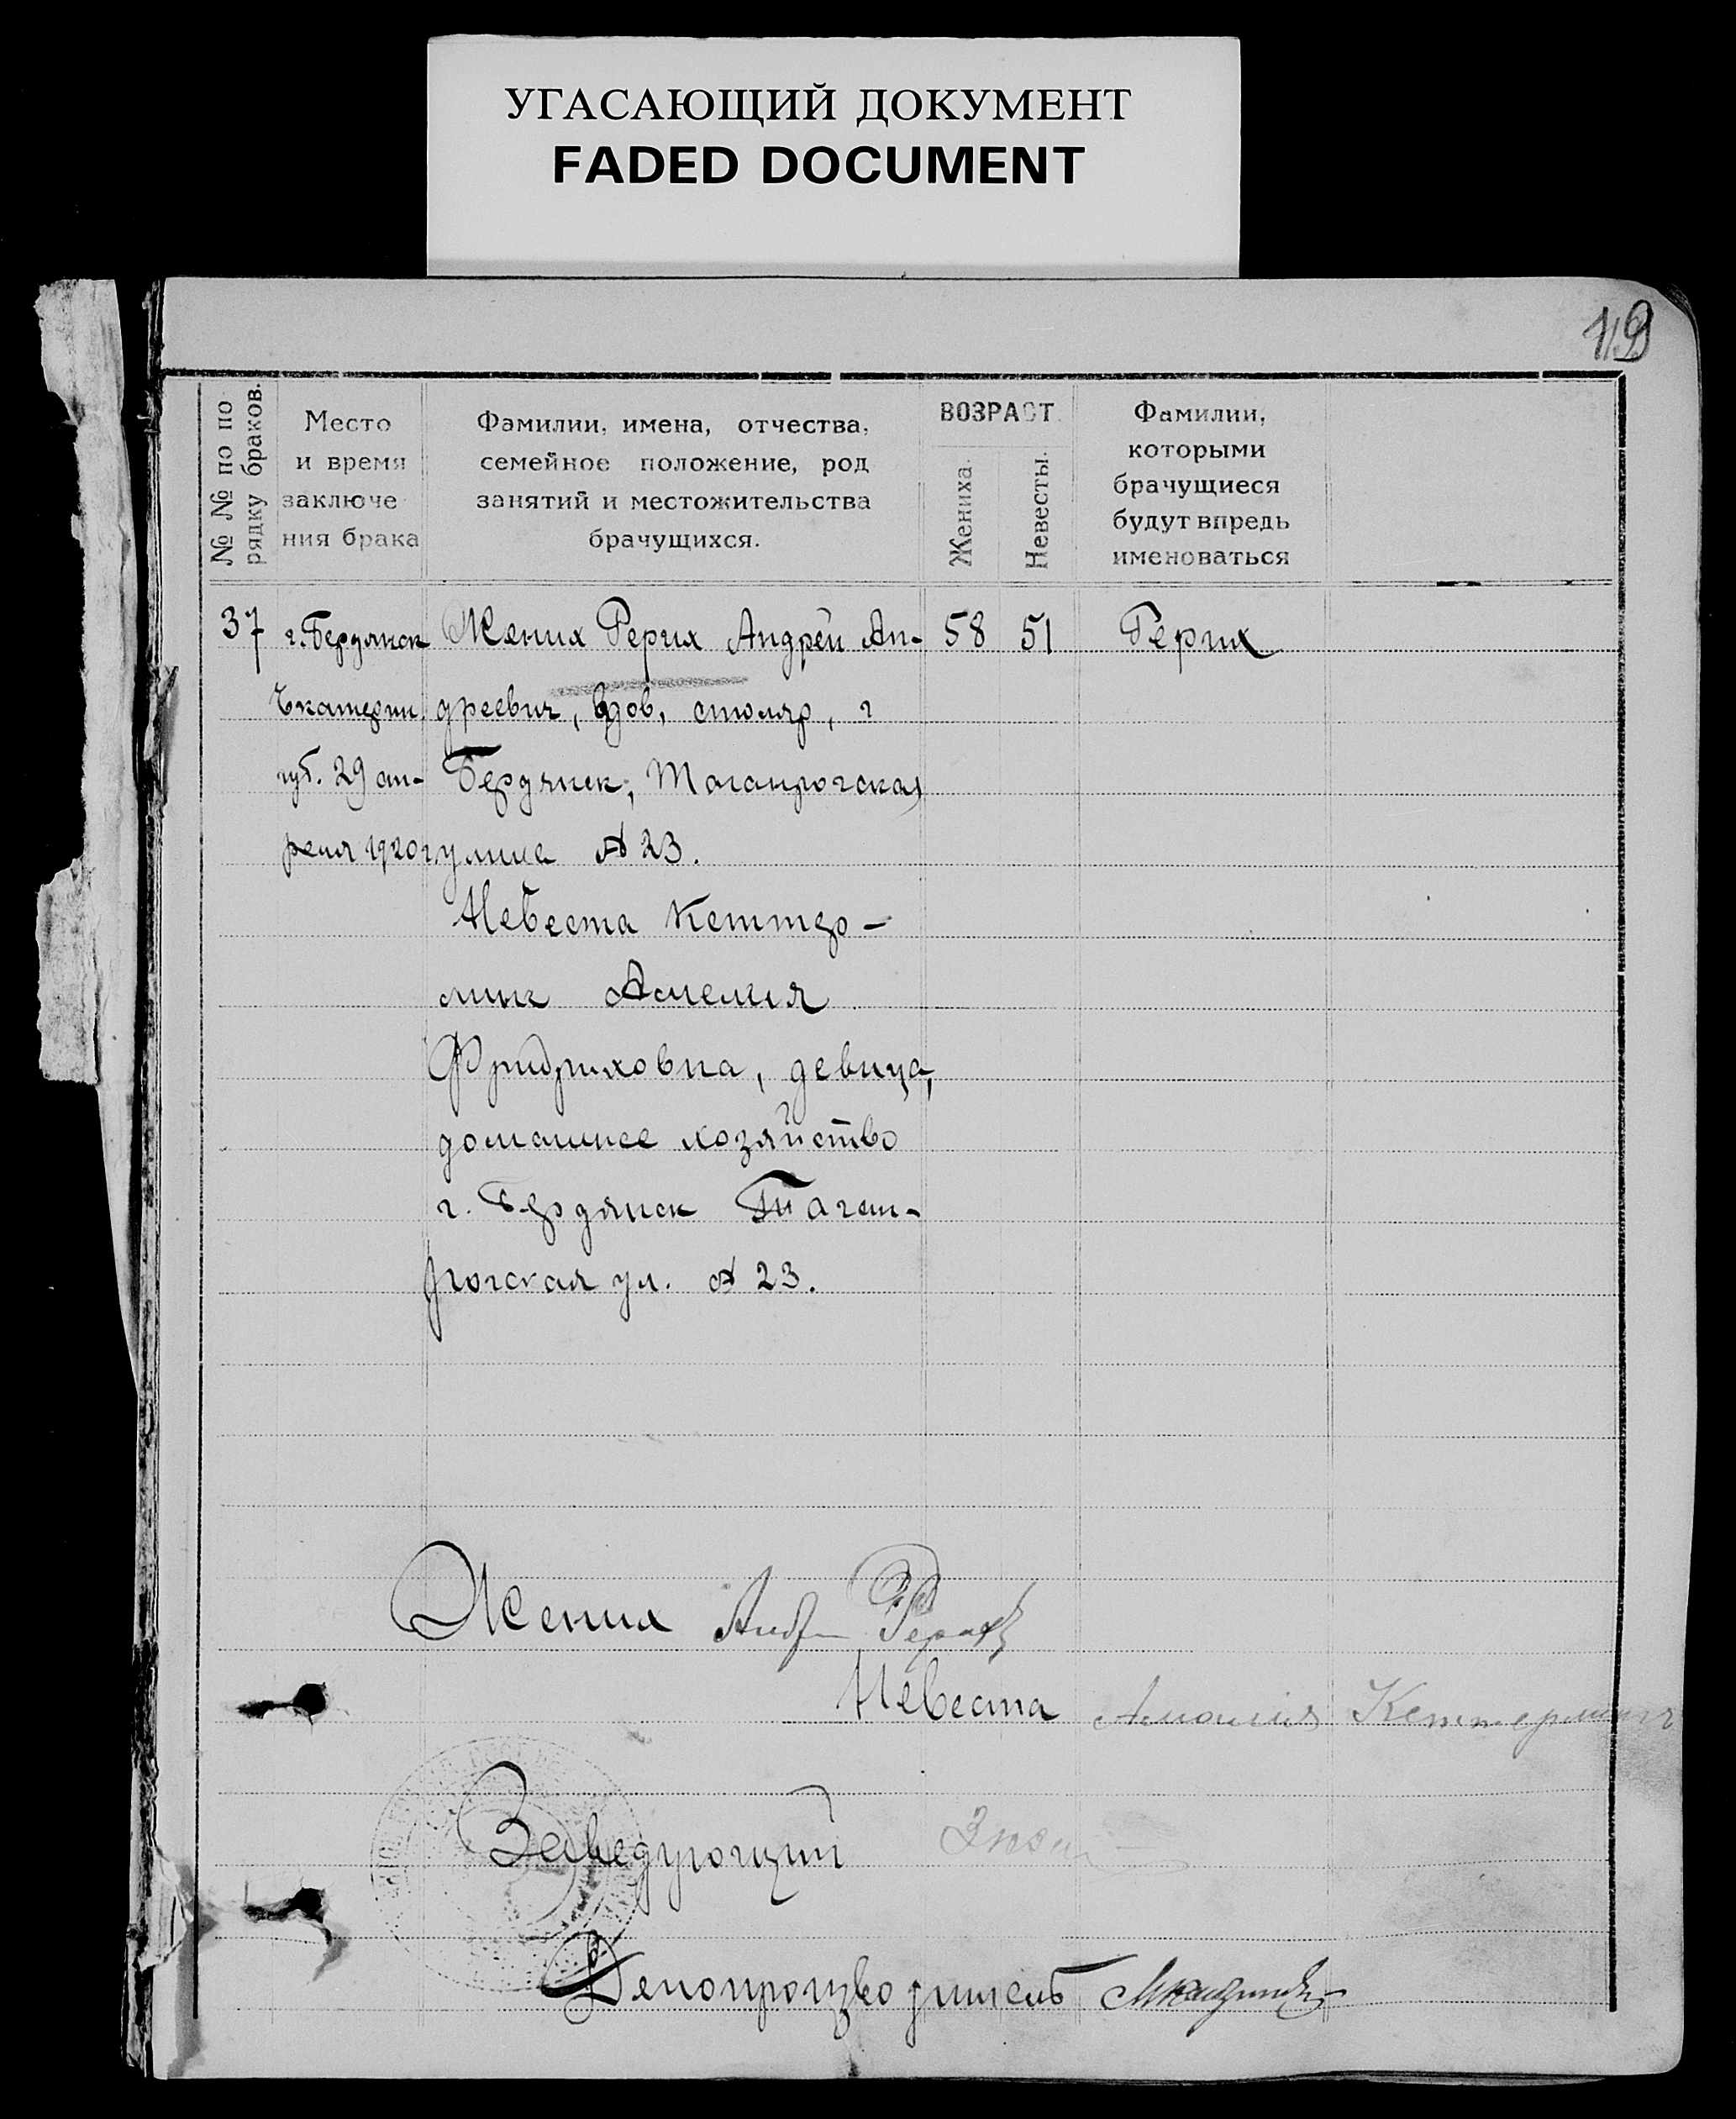 УГАСАЮЩИЙ ДОКУМЕНТ
FADED DOCUMENT
119
№ № по по
рядку браков.
Место
и время
заключе
ния брака
Фамилии, имена, отчества,
семейное положение, род
занятий и местожительства
брачущихся.
ВОЗРАСТ.
Жениха.
Невесты.
Фамилии,
которыми
брачущиеся
будут впредь
именоваться
37
г. Бердянск
Екатерин.
губ. 29 ап-
реля 1920 г.
Жених Рерих Андрей Ан-
дреевич, вдов, столяр, г
Бердянск, Таганрогская
улица № 23.
Невеста Кеттер-
линг Амелия
Фридриховна, девица,
домашнее хозяйство
г. Бердянск Таган-
рогская ул. № 23.
58
51
Рерих
Жених Андр Рерихъ
Невеста Амалия Кеттерлинг
Заведующий
Делопроизводитель